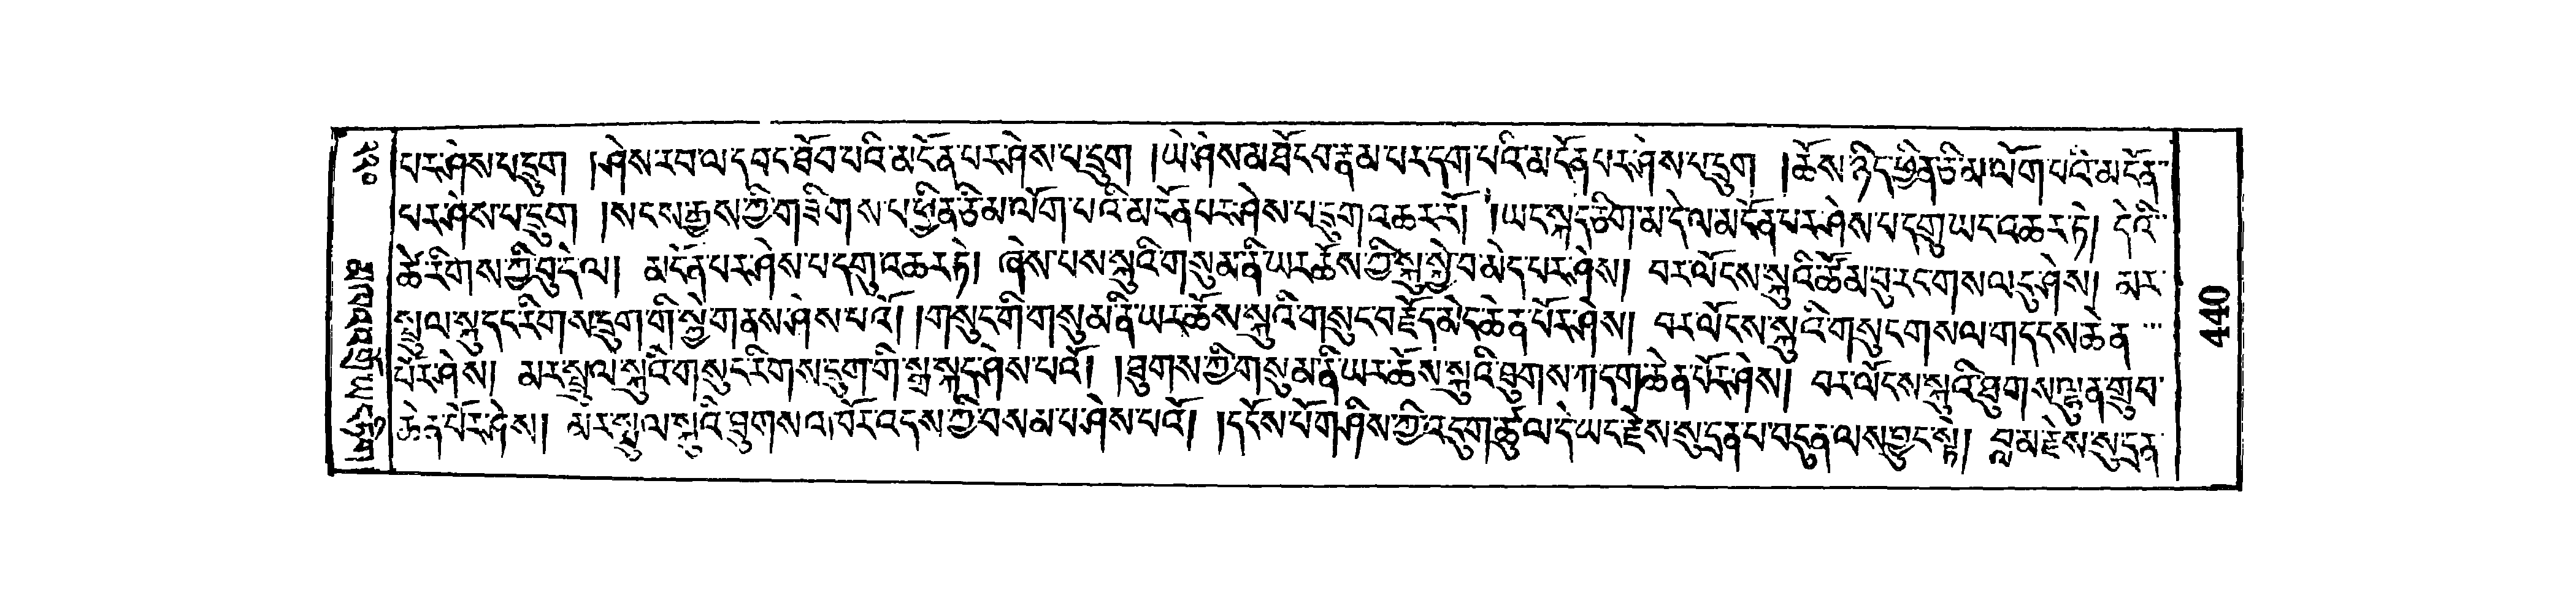 པར་ཤེས་པ་དྲུག །ཤེས་རབ་ལ་དབང་ཐོབ་པའི་མངོན་པར་ཤེས་པ་དྲུག །ཡེ་ཤེས་མཐོང་བ་རྣམ་པར་དག་པའི་མངོན་པར་ཤེས་པ་དྲུག །ཆོས་ཉིད་ཕྱིན་ཅི་མ་ལོག་པའི་མངོན་
པར་ཤེས་པ་དྲུག །སངས་རྒྱས་ཀྱི་གཟིགས་པ་ཕྱིན་ཅི་མ་ལོག་པའི་མངོན་པར་ཤེས་པ་དྲུག་འཆར་རོ། །ཡང་སྐད་ཅིག་མ་དེ་ལ་མངོན་པར་ཤེས་པ་དགུ་ཡང་འཆར་ཏེ། དེའི་
ཚེ་རིགས་ཀྱི་བུ་དེ་ལ། མངོན་པར་ཤེས་པ་དགུ་འཆར་ཏེ། ཞེས་པས་སྐུའི་གསུམ་ནི་ཡར་ཆོས་ཀྱི་སྐུ་སྐྱེ་བ་མེད་པར་ཤེས། བར་ལོངས་སྐུའི་ཚོམ་བུ་རང་གསལ་དུ་ཤེས། མར་
སྤྲུལ་སྐུ་དང་རིགས་དྲུག་གི་སྐྱེ་གནས་ཤེས་པའོ། །གསུང་གི་གསུམ་ནི་ཡར་ཆོས་སྐུའི་གསུང་བརྗོད་མེད་ཆེན་པོར་ཤེས། བར་ལོངས་སྐུའི་གསུང་གསལ་གདངས་ཆེན་
པོར་ཤེས། མར་སྤྲུལ་སྐུའི་གསུང་རིགས་དྲུག་གི་སྒྲ་སྐད་ཤེས་པའོ། །ཐུགས་ཀྱི་གསུམ་ནི་ཡར་ཆོས་སྐུའི་ཐུགས་ཀ་དག་ཆེན་པོར་ཤེས། བར་ལོངས་སྐུའི་ཐུགས་ལྷུན་གྲུབ་
ཆེན་པོར་ཤེས། མར་སྤྲུལ་སྐུའི་ཐུགས་འཁོར་འདས་ཀྱི་བསམ་པ་ཤེས་པའོ། །དངོས་པོ་གཤིས་ཀྱི་འདུག་ཚུལ་དེ་ཡང་རྗེས་སུ་དྲན་པ་བདུན་ལས་བྱུང་སྟེ། བླ་མ་རྗེས་སུ་དྲན་